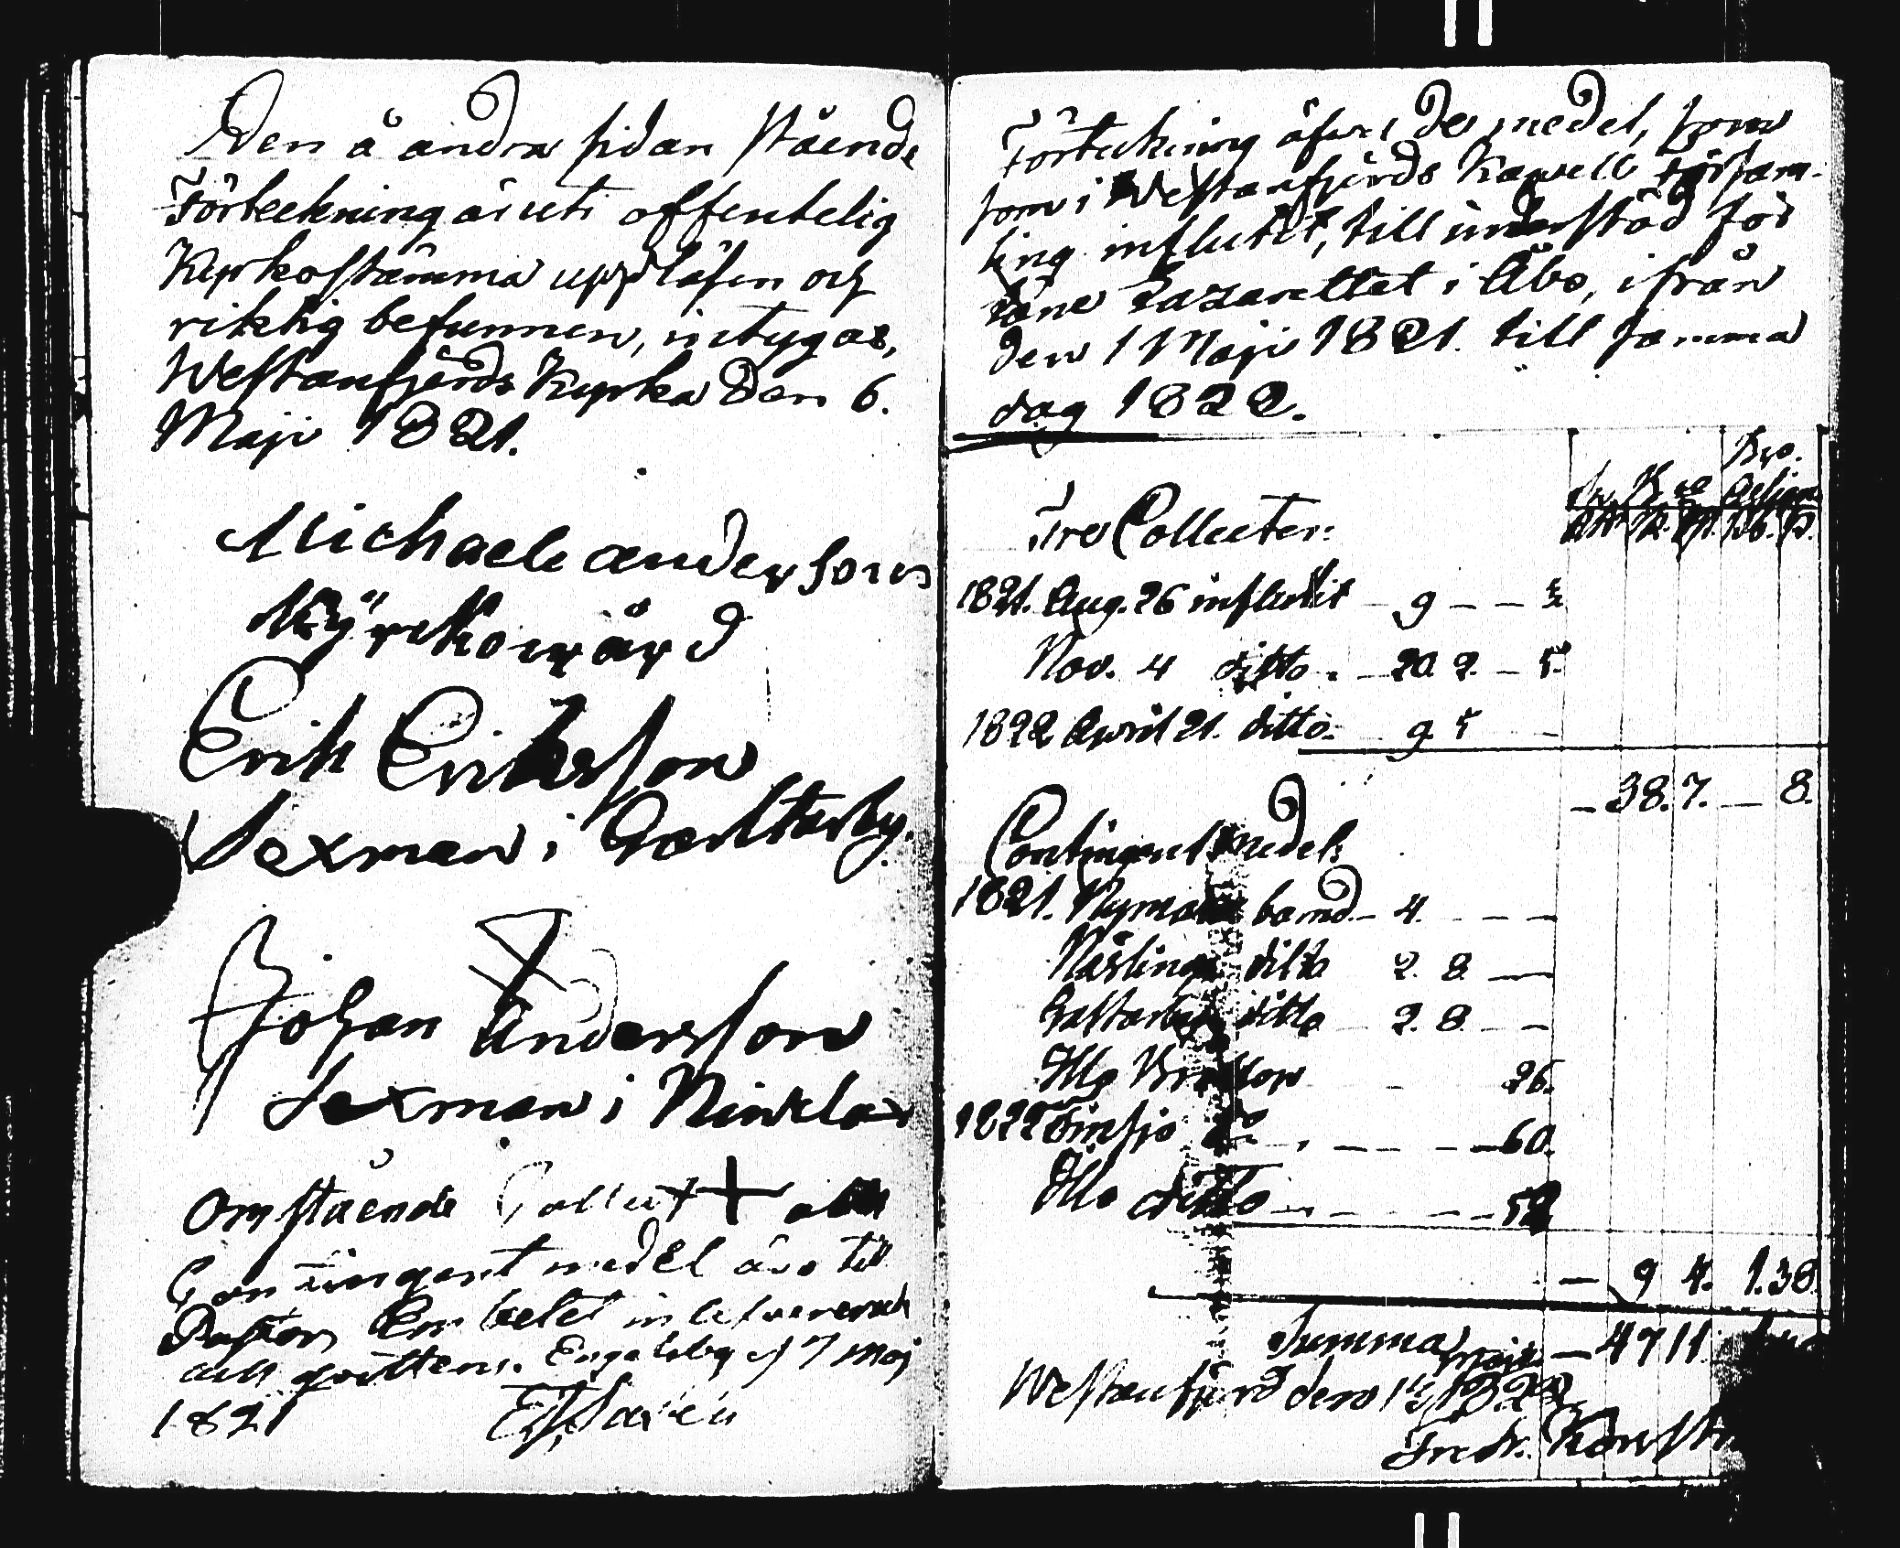 Den å andra sidan stående
Förteckning är uti offentelig
Kyrkostämma uppläsen och
riktig befunnen, intygas,
Westanfjerds Kyrka den 6.
Maji 1821.
Michael andersson
Kyrkowärd
Erik Eriksson
Sexman i Galtarby.
Johan Andersson
Sexman i Nivelax
Omstående Collect +
Contingent medel äro till
Pastors Embetet inlefvererade
och qvitteras. Engelsby d 7 Maj
1821
Förteckning öfver de medel, som
som i Westanfjerds Kapell Församling
ling influtit, till understöd för
Läne Lazarettet i Åbo, ifrån
den 1 Maji 1821. till samma
dag 1822.
Bco.
Tre Collecter:
1821. Aug. 26 influtit - 9 - -
Nov. 4 ditto. - 20 2. - 5.
1822 April 21. ditto. 9 5 -
- 38. 7. - 8.
Contingent medel:
1821. Nyman bomd. - 4. - - -
ditto 2. 8. -
Galtarby ditto 2. 8. - -
Illo - 26.
1822 Finsjö do - - - 60.
Illo ditto - - - - 52
- 9 4. 1.38.
Summa - 47 11.
Westanfjerd den 1822.
Fredr.